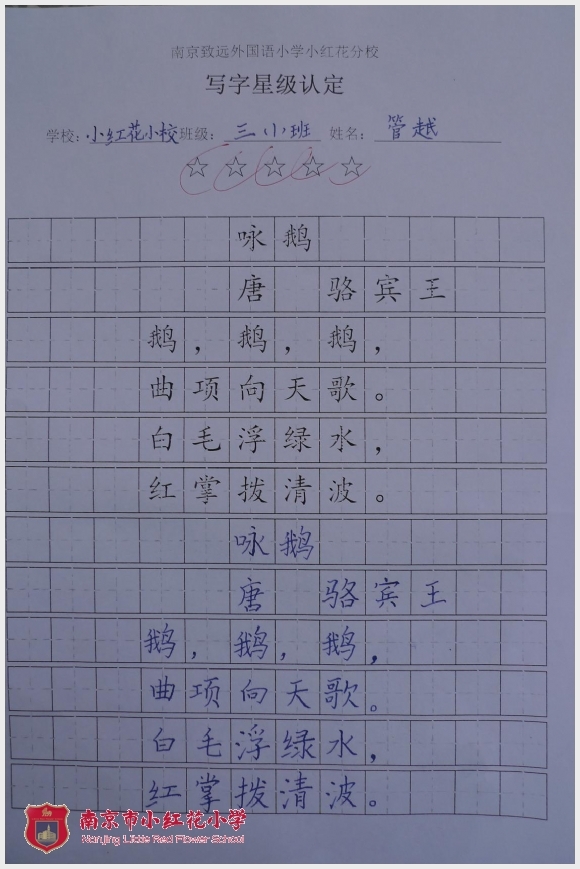 南京致远外国语小学小红花分校
写字星级认定
学校：小红花小校班级：三（1）班 姓名：管越
咏鹅
唐 骆宾王
鹅，鹅，鹅，
曲项向天歌。
白毛浮绿水，
红掌拨清波。
咏鹅
唐 骆宾王
鹅，鹅，鹅，
曲项向天歌。
白毛浮绿水，
红掌拨清波。
南京市小红花小学
Nanjing Little Red Flower School